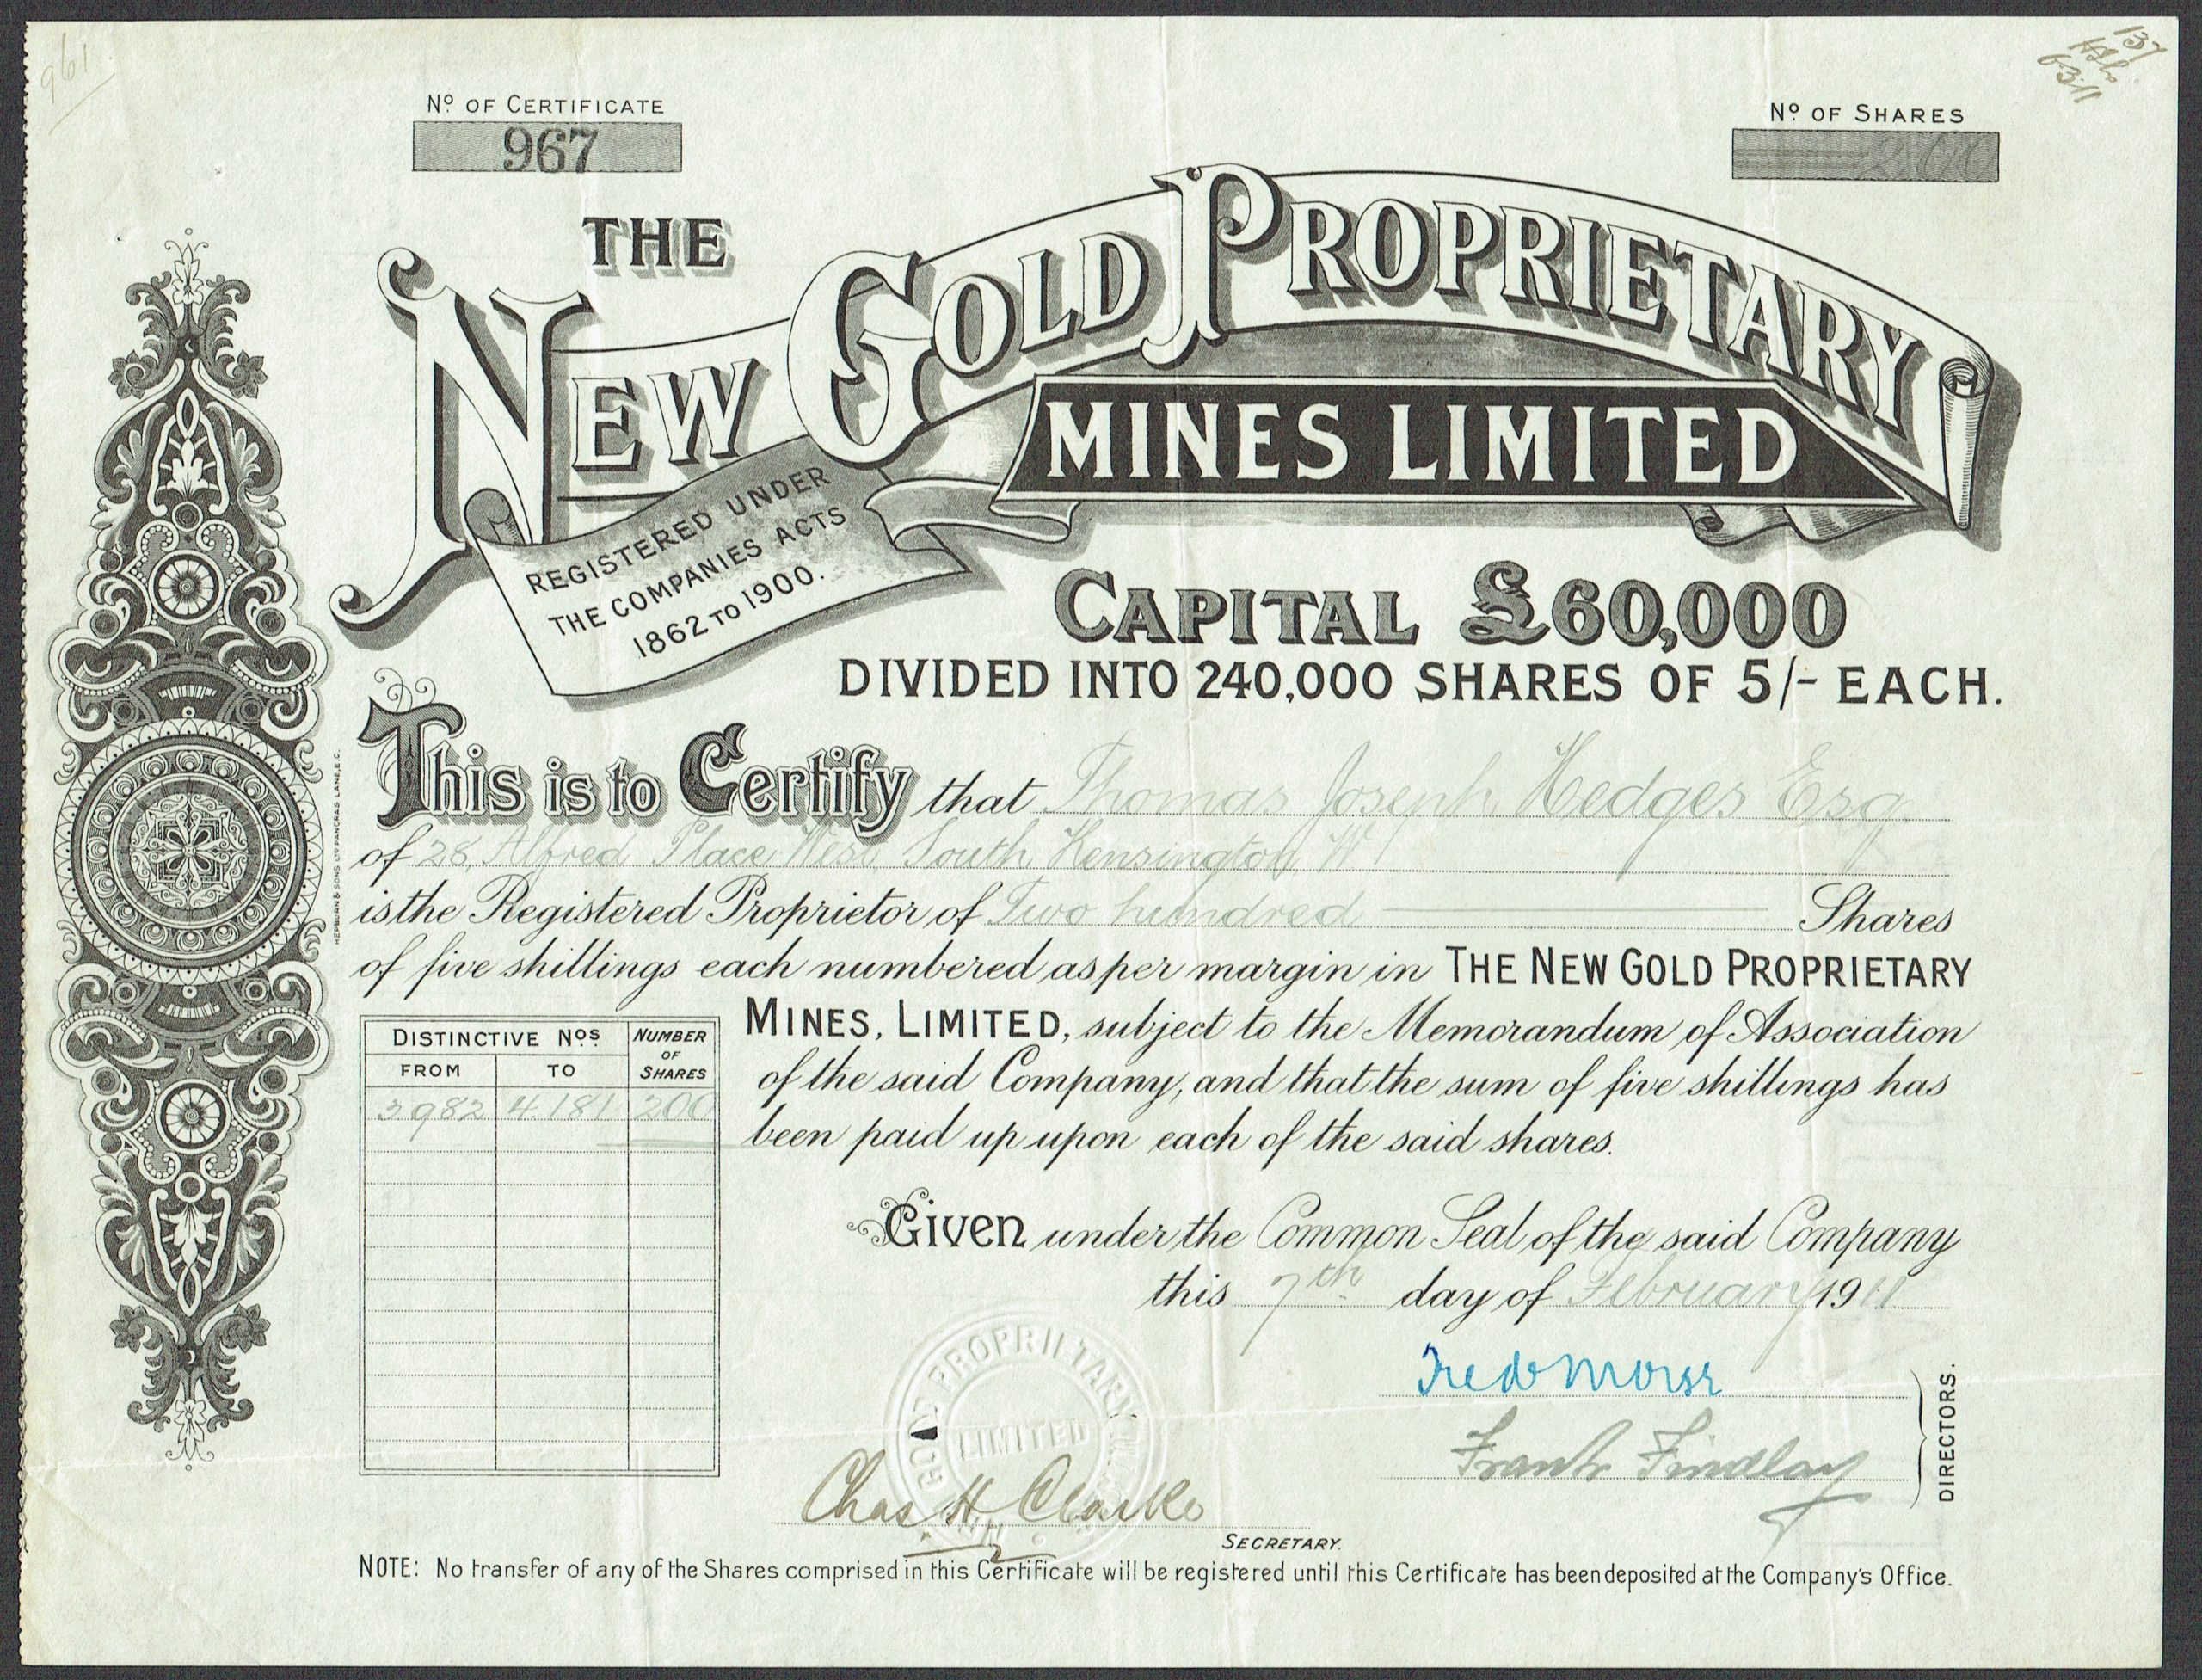 961
137
6.3.11
Nº OF CERTIFICATE
967
Nº OF SHARES
200
THE
NEW GOLD PROPRIETARY
MINES LIMITED
REGISTERED UNDER
THE COMPANIES ACTS
1862 TO 1900.
CAPITAL £60,000
DIVIDED INTO 240,000 SHARES OF 5/- EACH.
This is to Certify that Thomas Joseph Hedges Esq.
of 28, Alfred Place West South Kensington W
is the Registered Proprietor of Two hundred Shares
of five shillings each numbered as per margin in THE NEW GOLD PROPRIETARY
MINES, LIMITED, subject to the Memorandum of Association
of the said Company, and that the sum of five shillings has
been paid up upon each of the said shares.
DISTINCTIVE NOS. NUMBER OF SHARES
FROM TO
3982 4181 200
Given under the Common Seal of the said Company
this 7th day of February 1911
Fred W Morse
Frank Findlay
DIRECTORS.
PROPRIETARY
LIMITED
Chas H Clarke
SECRETARY.
NOTE: No transfer of any of the Shares comprised in this Certificate will be registered until this Certificate has been deposited at the Company's Office.
HEPBURN & SONS LTD PANCRAS LANE, E.C.